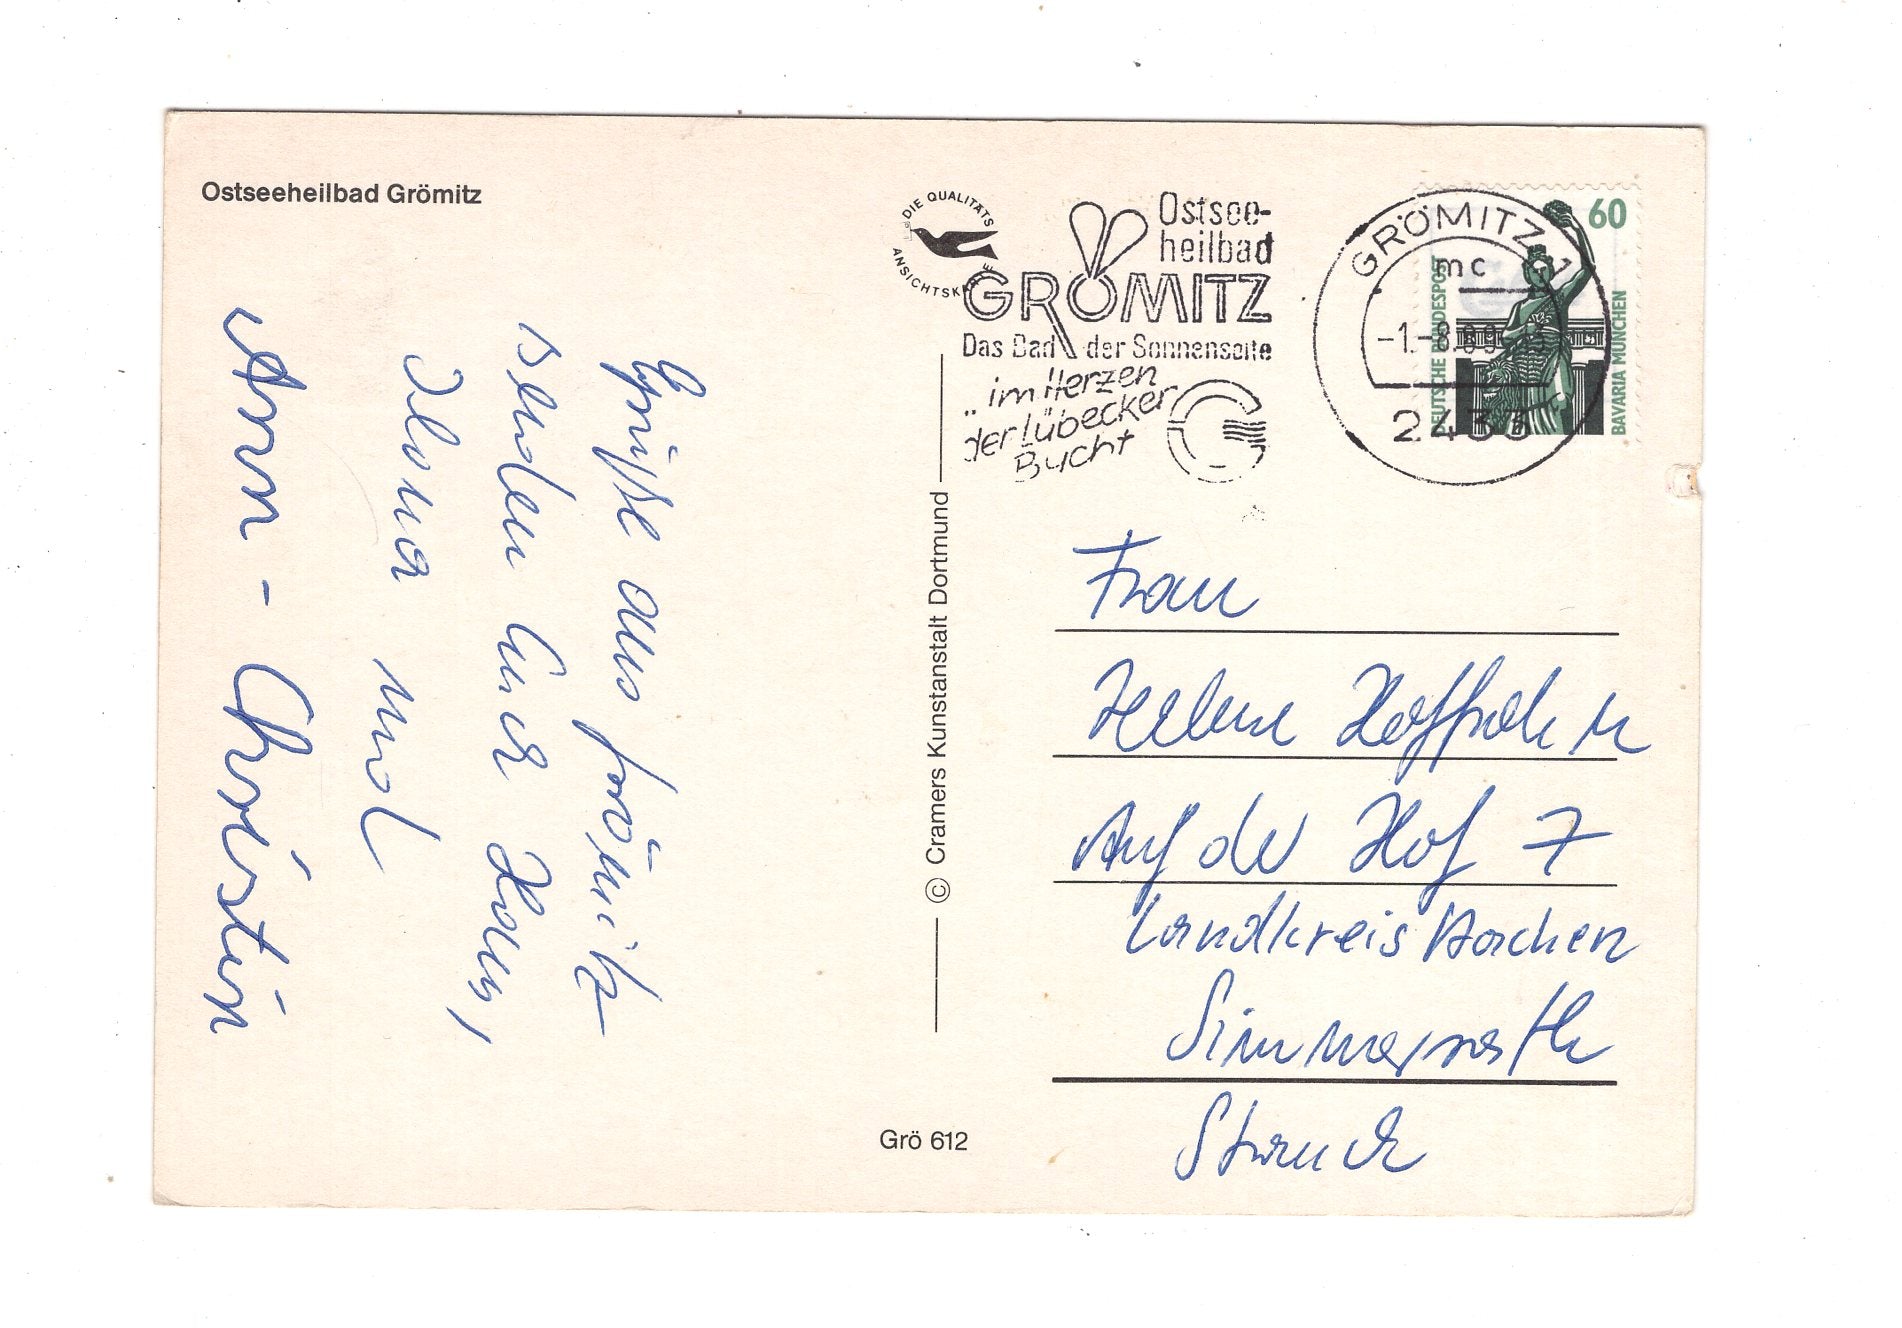 Ostseeheilbad Grömitz
Grüße aus Grömitz
senden Euch Hans,
Ilona und
Ann-Christin
DIE QUALITÄTS
ANSICHTSKARTE
Ostsee-
heilbad
GRÖMITZ
Das Bad der Sonnenseite
.. im Herzen
der Lübecker
Bucht
GRÖMITZ 1
mc
-1.-8.89
2433
60
DEUTSCHE BUNDESPOST
BAVARIA MÜNCHEN
© Cramers Kunstanstalt Dortmund
Grö 612
Frau
Helene
Auf der Hof 7
Landkreis Aachen
Simmerath
Strauch